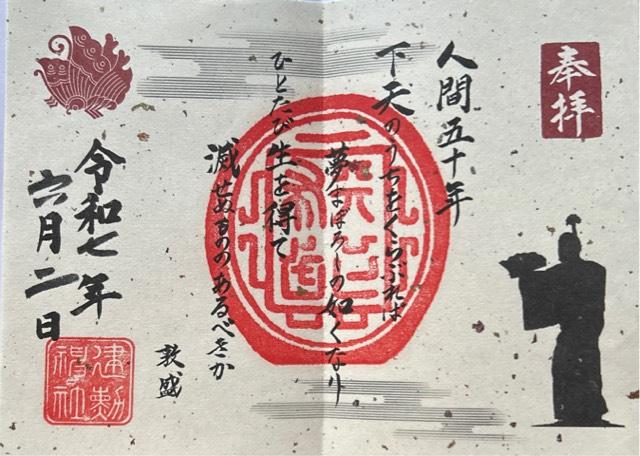 奉拝
人間五十年
下天のうちをくらぶれば
夢まぼろしの如くなり
ひとたび生を得て
滅せぬもののあるべきか
敦盛
天下布武
令和七年
六月二日
建勲
神社